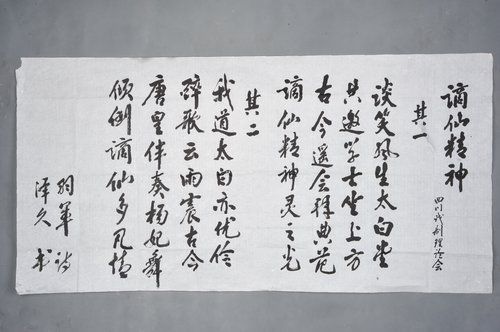 谪仙精神
四川戏剧理论会
其一
谈笑风生太白堂
共邀学士坐上方
古今遥会拜典范
谪仙精神灵之光
其二
我道太白亦优伶
醉歌云雨震古今
唐皇伴奏杨妃舞
倾倒谪仙多风情
羽军诗
泽久书